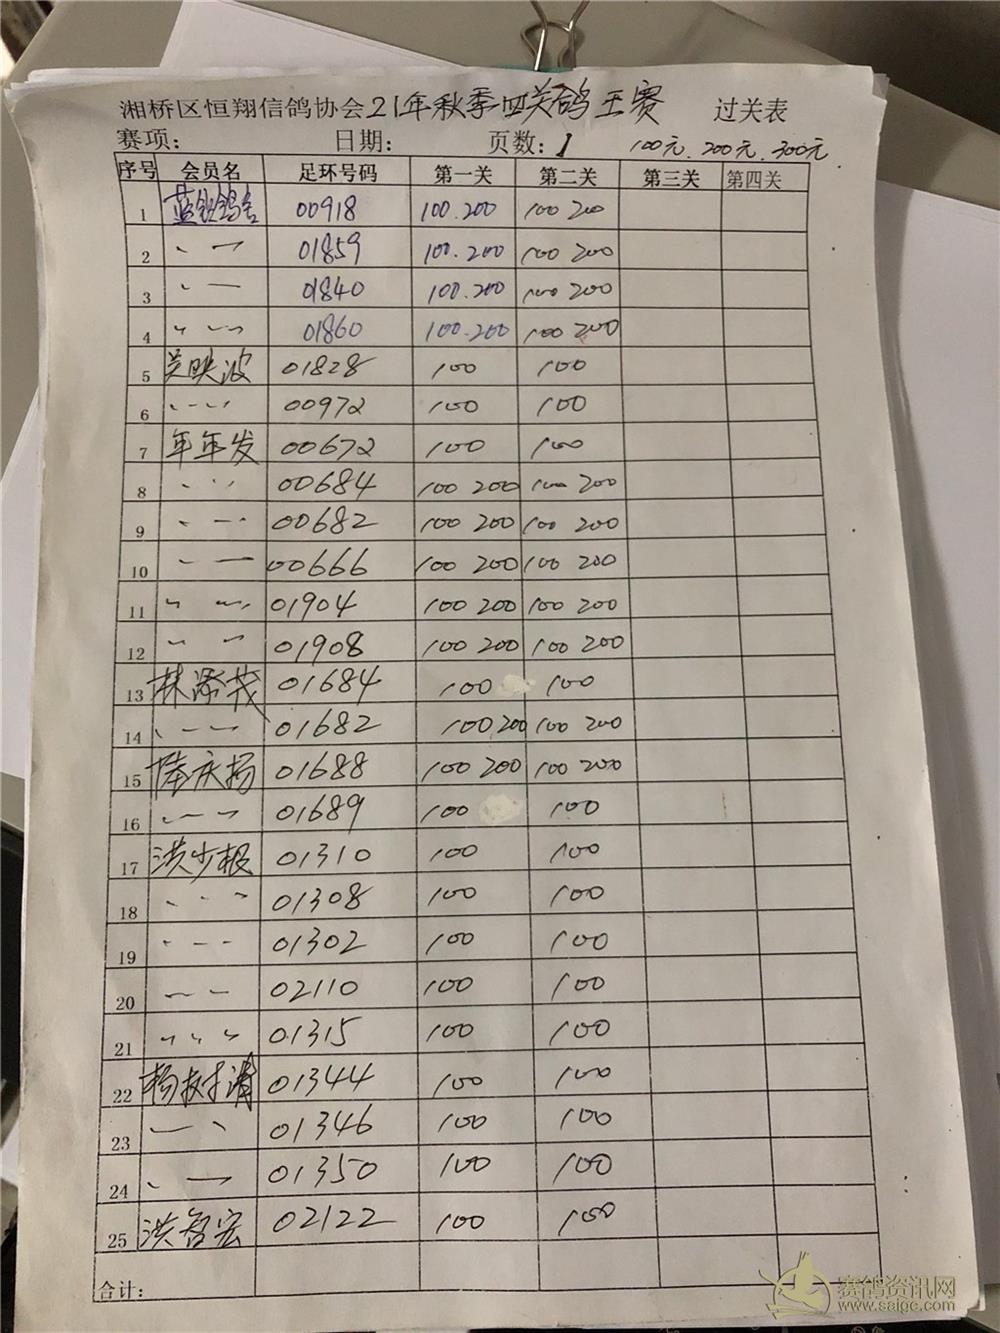 湘桥区恒翔信鸽协会21年秋季四关鸽王赛 过关表
赛项: 日期: 页数:1 100元.200元.300元.
序号 会员名 足环号码 第一关 第二关 第三关 第四关
1 00918 100.200 100 200
2 〃 〃 01859 100.200 100 200
3 〃 〃 01840 100.200 100 200
4 〃 〃 01860 100.200 100 200
5 吴映波 01828 100 100
6 〃 〃 00972 100 100
7 年年发 00672 100 100
8 〃 〃 00684 100 200 100 200
9 〃 〃 00682 100 200 100 200
10 〃 〃 00666 100 200 100 200
11 〃 〃 01904 100 200 100 200
12 〃 〃 01908 100 200 100 200
13 林添茂 01684 100 100
14 〃 〃 01682 100 200 100 200
15 陆庆扬 01688 100 200 100 200
16 〃 〃 01689 100 100
17 洪少根 01310 100 100
18 〃 〃 01308 100 100
19 〃 〃 01302 100 100
20 〃 〃 02110 100 100
21 〃 〃 01315 100 100
22 杨树清 01344 100 100
23 〃 〃 01346 100 100
24 〃 〃 01350 100 100
25 洪智宏 02122 100 100
合计:
赛鸽资讯网
www.saige.com